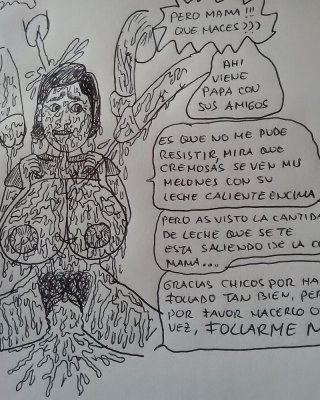 PERO MAMA!!!
QUE HACES???
AHI
VIENE
PAPA CON
SUS AMIGOS
ES QUE NO ME PUDE
RESISTIR, MIRA QUE
CREMOSAS SE VEN MIS
MELONES CON SU
LECHE CALIENTE ENCIMA
PERO AS VISTO LA CANTIDA
DE LECHE QUE SE TE
ESTA SALIENDO DE LA CO
MAMA...
GRACIAS CHICOS POR HA
FOLLADO TAN BIEN, PER
POR FAVOR HACERLO O
VEZ, FOLLARME M